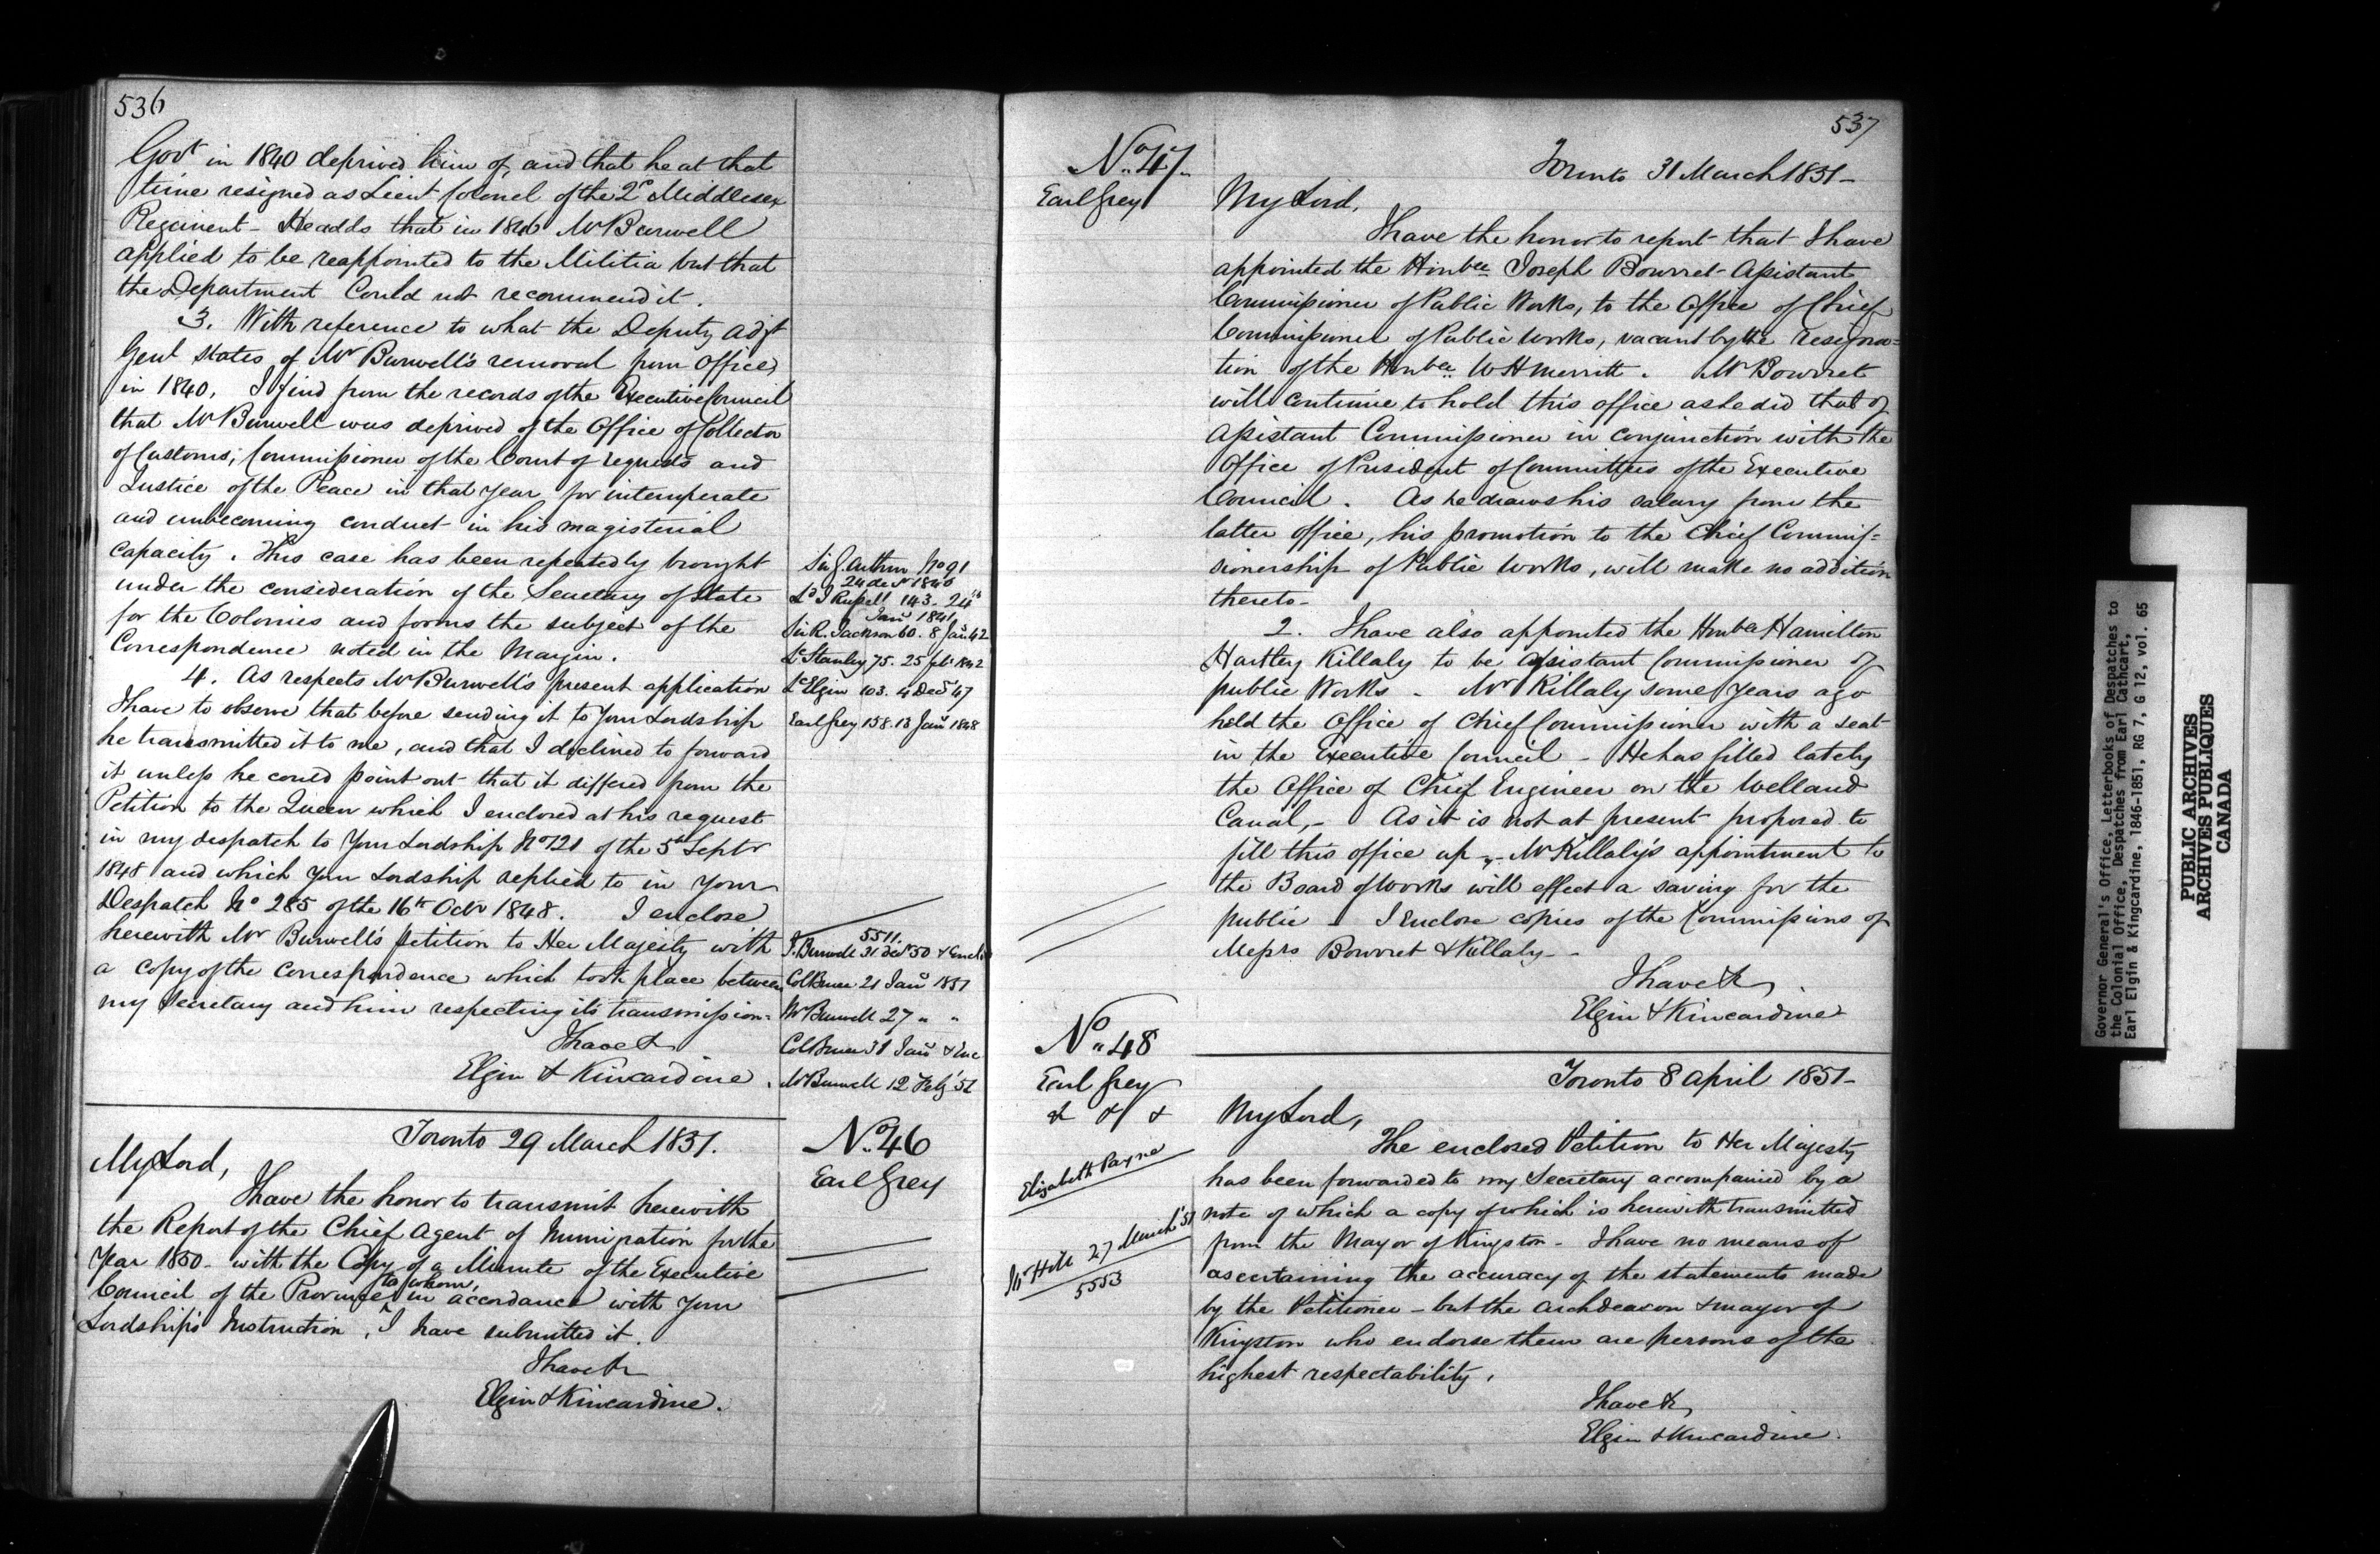 536
Govt in 1840 deprived him of, and that he at that
time resigned as Lieut Colonel of the 2d Middlesex
Regiment - He adds that in 1846 Mr Burwell
applied to be reappointed to the Militia but that
the Department Could not recommend it.
3. With reference to what the Deputy Adjt
Genl states of Mr Burwell's removal from Office
in 1840, I find from the records of the Executive Council
that Mr Burwell was deprived of the Office of Collector
of Customs; Commissioner of the Court of requests and
Justice of the Peace in that year for intemperate
and unbecoming conduct in his magisterial
Capacity. This case has been repeatedly brought
under the consideration of the Secretary of State
for the Colonies and forms the subject of the
Correspondence noted in the Margin.
Sir G. Arthur No 91
24 decr 1840
Ld J Russell 143. 24th
Jany 1841
Sir R. Jackson 60. 8 Jany 42
Ld Stanley 75. 25 feby 1842
Ld Elgin 103. 4 Decr 47
Earl Grey 158. 13 Jany 1848
4. As respects Mr Burwell's present application
I have to observe that before sending it to Your Lordship
he transmitted it to me, and that I declined to forward
it unless he could point out that it differed from the
Petition to the Queen which I enclosed at his request
in my despatch to Your Lordship No 121 of the 5th Septr
1848 and which Your Lordship replied to in Your
Despatch No 285 of the 16th Octr 1848. I enclose
herewith Mr Burwell's petition to Her Majesty with
a copy of the Correspondence which took place between
my Secretary and him respecting its transmission.
5511.
Burwell 31 decr 50 & Encl.
Col Bruce 21 Jany 1851
Mr Burwell 27 " "
Col Bruce 31 Jany & Enc
Mr Burwell 12 Feby '51
I have &
Elgin & Kincardine.
No 46
Earl Grey
Toronto 29 March 1851.
My Lord,
I have the honor to transmit herewith
the Report of the Chief Agent of Immigration for the
Year 1850 - with the Copy of a Minute of the Executive
Council of the Province to whom, in accordance with Your
Lordship's Instruction, I have submitted it.
I have &
Elgin & Kincardine.
537
No 47
Earl Grey
Toronto 31 March 1851 -
My Lord,
I have the honor to report that I have
appointed the Honble Joseph Bourret Assistant
Commissioner of Public Works, to the Office of Chief
Commissioner of Public Works, vacant by the resigna=
tion of the Honble W H Merritt. Mr Bourret
will continue to hold this office as he did that of
Assistant Commissioner in conjunction with the
Office of President of Committees of the Executive
Council. As he draws his salary from the
latter office, his promotion to the Chief Commis=
sionership of Public Works, will make no addition
thereto -
2. I have also appointed the Honble Hamilton
Hartley Killaly to be Assistant Commissioner of
public Works - Mr Killaly some years ago
held the Office of Chief Commissioner with a seat
in the Executive Council - He has filled lately
the Office of Chief Engineer on the Welland
Canal, - As it is not at present proposed to
fill this office up, - Mr Killaly's appointment to
the Board of Works will effect a saving for the
public - I Enclose copies of the Commissions of
Messrs Bourret & Killaly -
I have &
Elgin & Kincardine
No 48
Earl Grey
& & &
Toronto 8 April 1851 -
My Lord,
Elizabeth Payne
Mr Hill 27 March '51
5553
The enclosed Petition to Her Majesty
has been forwarded to my Secretary accompanied by a
note of which a copy of which is herewith transmitted
from the Mayor of Kingston - I have no means of
ascertaining the accuracy of the statements made
by the Petitioner - but the Archdeacon & Mayor of
Kingston who endorse them are persons of the
highest respectability.
I have &
Elgin & Kincardine.
Governor General's Office, Letterbooks of Despatches to
the Colonial Office, Despatches from Earl Cathcart,
Earl Elgin & Kingcardine, 1846-1851, RG 7, G 12, vol. 65
PUBLIC ARCHIVES
ARCHIVES PUBLIQUES
CANADA